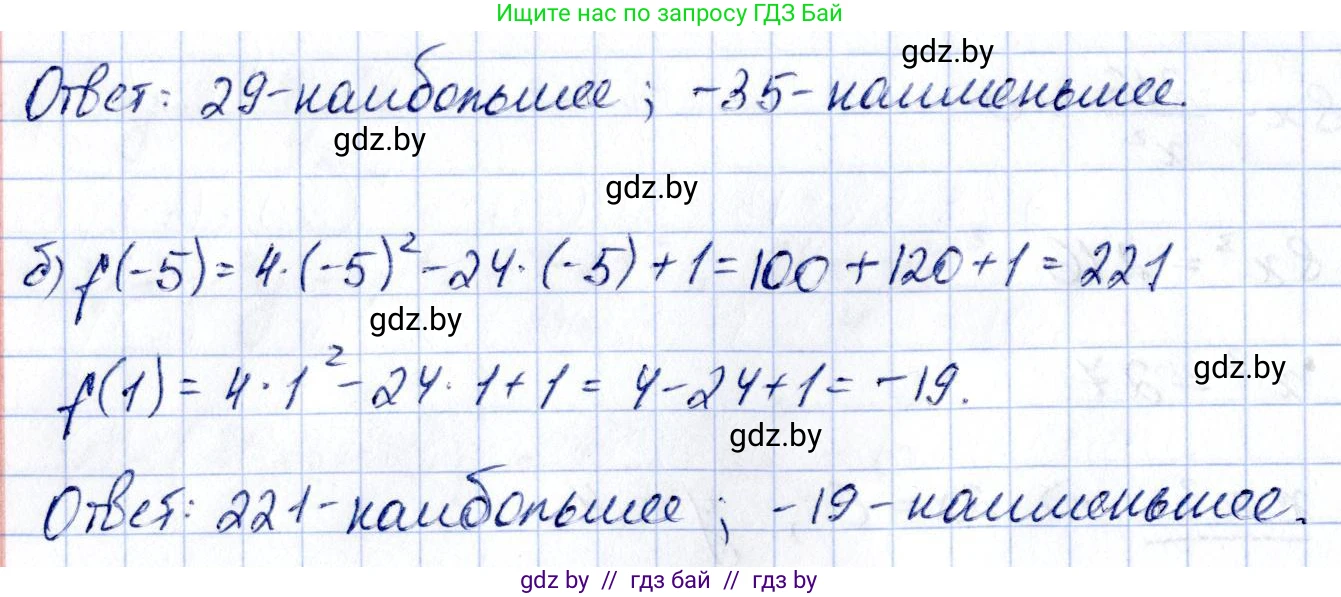 Ищите нас по запросу ГДЗ Бай
gdz.by
Ответ: 29 - наибольшее ; -35 - наименьшее.
gdz.by
gdz.by
б) f(-5) = 4·(-5)² - 24·(-5) + 1 = 100 + 120 + 1 = 221
gdz.by
f(1) = 4·1² - 24·1 + 1 = 4 - 24 + 1 = -19.
gdz.by
gdz.by
Ответ: 221 - наибольшее ; -19 - наименьшее.
gdz by // гдз бай // гдз by